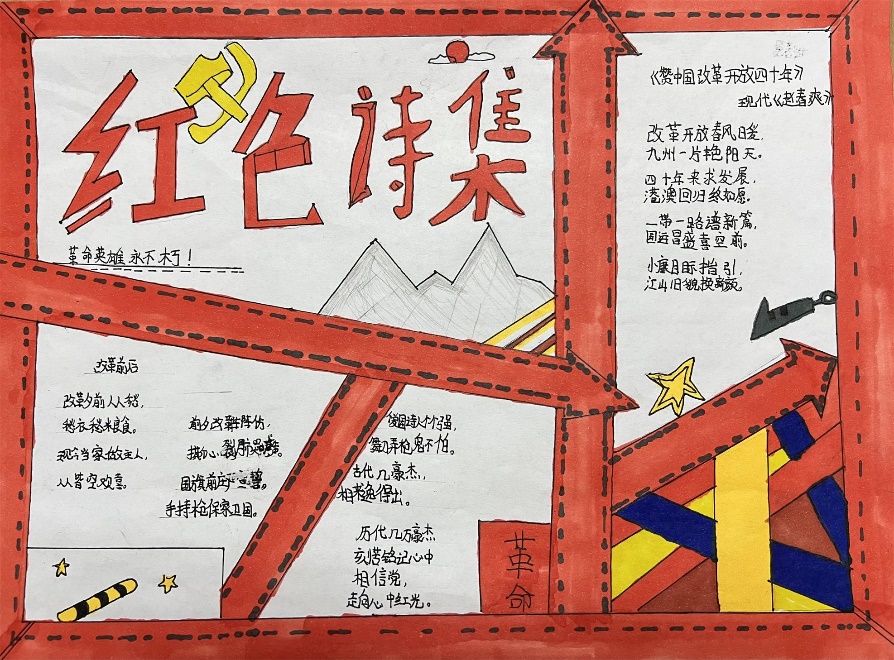 红色诗集
革命英雄永不朽！
《赞中国改革开放四十年》
现代《赵春爽》
改革开放春风日暖，
九州一片艳阳天。
四十年来求发展，
港澳回归终如愿。
一带一路谱新篇，
国运昌盛喜空前。
小康目标指引，
江山旧貌换新颜。
改革前后
改革夕前人人
衣 粮食。
现今当家做主人，
人人皆空欢喜。
心
国旗前
手持枪保家卫国。
爱国诗人个个强，
舞刀弄枪鬼不怕。
古代几豪杰，
历代几万豪杰
刻苦铭记心中
相信党，
走向心中红光。
革命